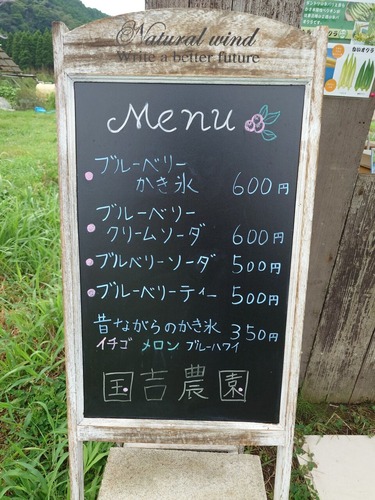 Natural wind
Write a better future
Menu
ブルーベリー
かき氷 600円
ブルーベリー
クリームソーダ 600円
ブルベリーソーダ 500円
ブルーベリーティー 500円
昔ながらのかき氷 350円
イチゴ メロン ブルーハワイ
国吉農園
オクラ